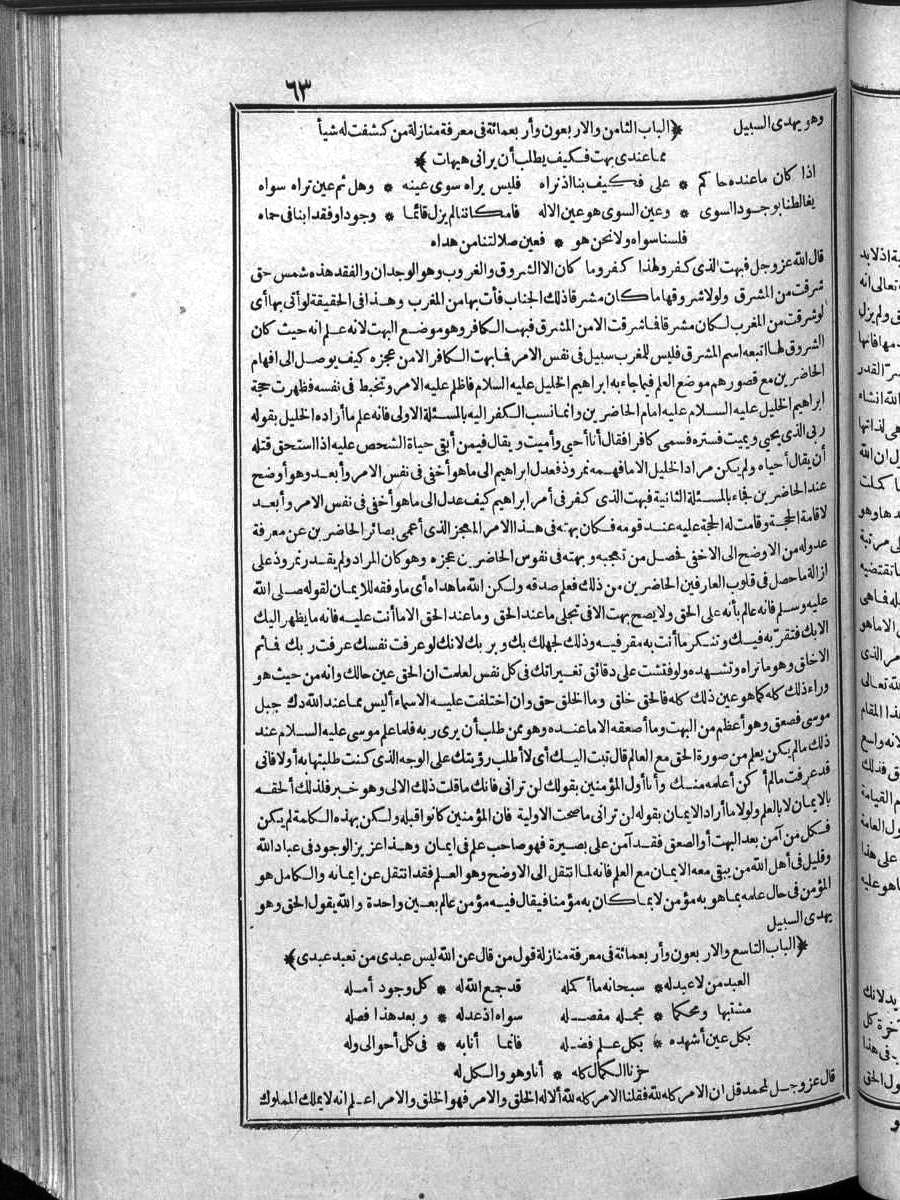 ٦٣
وهو يهدى السبيل ﴿الباب الثامن والاربعون وأربعمائة فى معرفة منازلة من كشفت له شيأ
مما عندى بهت فكيف يطلب أن يرانى هيهات﴾
اذا كان ماعنده حاكم * على فكيف بنا اذ نراه فليس يراه سوى عينه * وهل ثم عين تراه سواه
يغالطنا بوجود السوى * وعين السوى هو عين الاله فامكاننا لم يزل قائما * وجودا وفقدا بنا فى حماه
فلسنا سواه ولا نحن هو * فعين ضلالتنا من هداه
قال الله عز وجل فبهت الذى كفر ولهذا كفر وما كان الا الشروق والغروب وهو الوجدان والفقد هذه شمس حق
شرقت من المشرق ولولا شروقها ما كان مشرقا ذلك الجناب فأت بها من المغرب وهذا فى الحقيقة لو أتى بها أى
لو شرقت من المغرب لكان مشرقا فما شرقت الا من المشرق فبهت الكافر وهو موضع البهت لانه علم انه حيث كان
الشروق لها اتبعه اسم المشرق فليس للمغرب سبيل فى نفس الامر فما بهت الكافر الا من عجزه كيف يوصل الى افهام
الحاضرين مع قصورهم موضع العلم فيما جاء به ابراهيم الخليل عليه السلام فاظلم عليه الامر وتخبط فى نفسه فظهرت حجة
ابراهيم الخليل عليه السلام عليه امام الحاضرين وانما نسب الكفر اليه بالمسئلة الاولى فانه علم ما أراده الخليل بقوله
ربى الذى يحيى ويميت فستره فسمى كافرا فقال أنا أحيى وأميت ويقال فيمن أبقى حياة الشخص عليه اذا استحق قتله
أن يقال أحياه ولم يكن مراد الخليل الا ما فهمه نمروذ فعدل ابراهيم الى ما هو أخفى فى نفس الامر وأبعد وهو أوضح
عند الحاضرين فجاء بالمسئلة الثانية فبهت الذى كفر فى أمر ابراهيم كيف عدل الى ما هو أخفى فى نفس الامر وأبعد
لاقامة الحجة وقامت له الحجة عليه عند قومه فكان بهته فى هذا الامر المعجز الذى أعمى بصائر الحاضرين عن معرفة
عدوله من الاوضح الى الاخفى فحصل من تعجبه وبهته فى نفوس الحاضرين عجزه وهو كان المراد ولم يقدر نمروذ على
ازالة ما حصل فى قلوب العارفين الحاضرين من ذلك فعلم صدقه ولكن الله ما هداه أى ما وفقه للايمان لقوله صلى الله
عليه وسلم فانه عالم بأنه على الحق ولا يصح بهت الا فى تجلى ما عند الحق وما عند الحق الا ما أنت عليه فانه ما يظهر اليك
الا بك فتقرّ به فيك وتنكر ما أنت به مقر فيه وذلك لجهلك بك وبربك لانك لو عرفت نفسك عرفت ربك فما ثم
الا خلق وهو ما تراه وتشهده ولو فتشت على دقائق تغيراتك فى كل نفس لعلمت ان الحق عين حالك وانه من حيث هو
وراء ذلك كله كما هو عين ذلك كله فالحق خلق وما الخلق حق وان اختلفت عليه الاسماء أليس مما عند الله دك جبل
موسى فصعق وهو أعظم من البهت وما أصعقه الا ما عنده وهو ممن طلب أن يرى ربه فلما علم موسى عليه السلام عند
ذلك ما لم يكن يعلم من صورة الحق مع العالم قال تبت اليك أى لا أطلب رؤيتك على الوجه الذى كنت طلبتها به أولا فانى
قد عرفت ما لم أكن أعلمه منك وأنا أول المؤمنين بقولك لن ترانى فانك ما قلت ذلك الا لى وهو خبر فلذلك ألحقه
بالايمان لا بالعلم ولولا ما أراد الايمان بقوله لن ترانى ما صحت الاولية فان المؤمنين كانوا قبله ولكن بهذه الكلمة لم يكن
فكل من آمن بعد البهت أو الصعق فقد آمن على بصيرة فهو صاحب علم فى ايمان وهذا عزيز الوجود فى عباد الله
وقليل فى أهل الله من يبقى معه الايمان مع العلم فانه لما انتقل الى الاوضح وهو العلم فقد انتقل عن ايمانه والكامل هو
المؤمن فى حال علمه بما هو به مؤمن لا بما كان به مؤمنا فيقال فيه مؤمن عالم بعين واحدة والله يقول الحق وهو
يهدى السبيل
﴿الباب التاسع والاربعون وأربعمائة فى معرفة منازلة قول من قال عن الله ليس عبدى من تعبد عبدى﴾
العبد من لا عبد له * سبحانه ما أكمله قد جمع الله له * كل وجود أمله
مشتبها ومحكما * مجمله مفصله سواه اذ عدله * وبعد هذا فصله
بكل عين أشهده * بكل علم فضله فانما أنا به * فى كل أحوالى وله
حزنا الكمال كله * أنا وهو والكل له
قال عز وجل لمحمد قل ان الامر كله لله فقلنا الامر كله لله ألا له الخلق والامر فهو الخلق والامر اعلم انه لا يملك المملوك